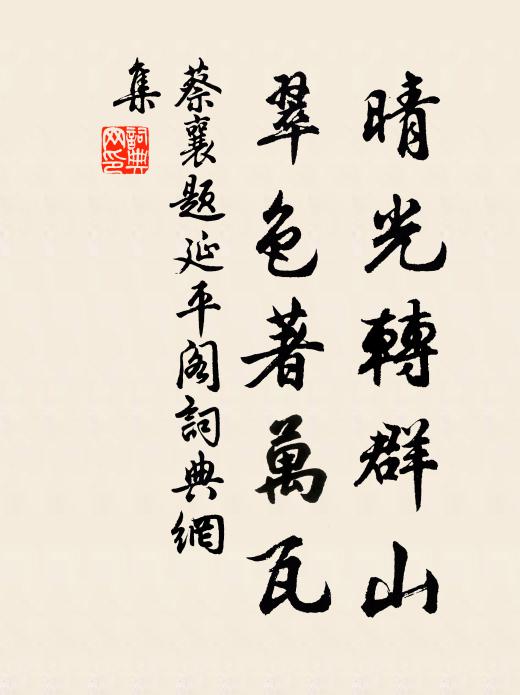 晴光轉群山
翠色著萬瓦
蔡襄題延平閣詞典網
集
詞典網印